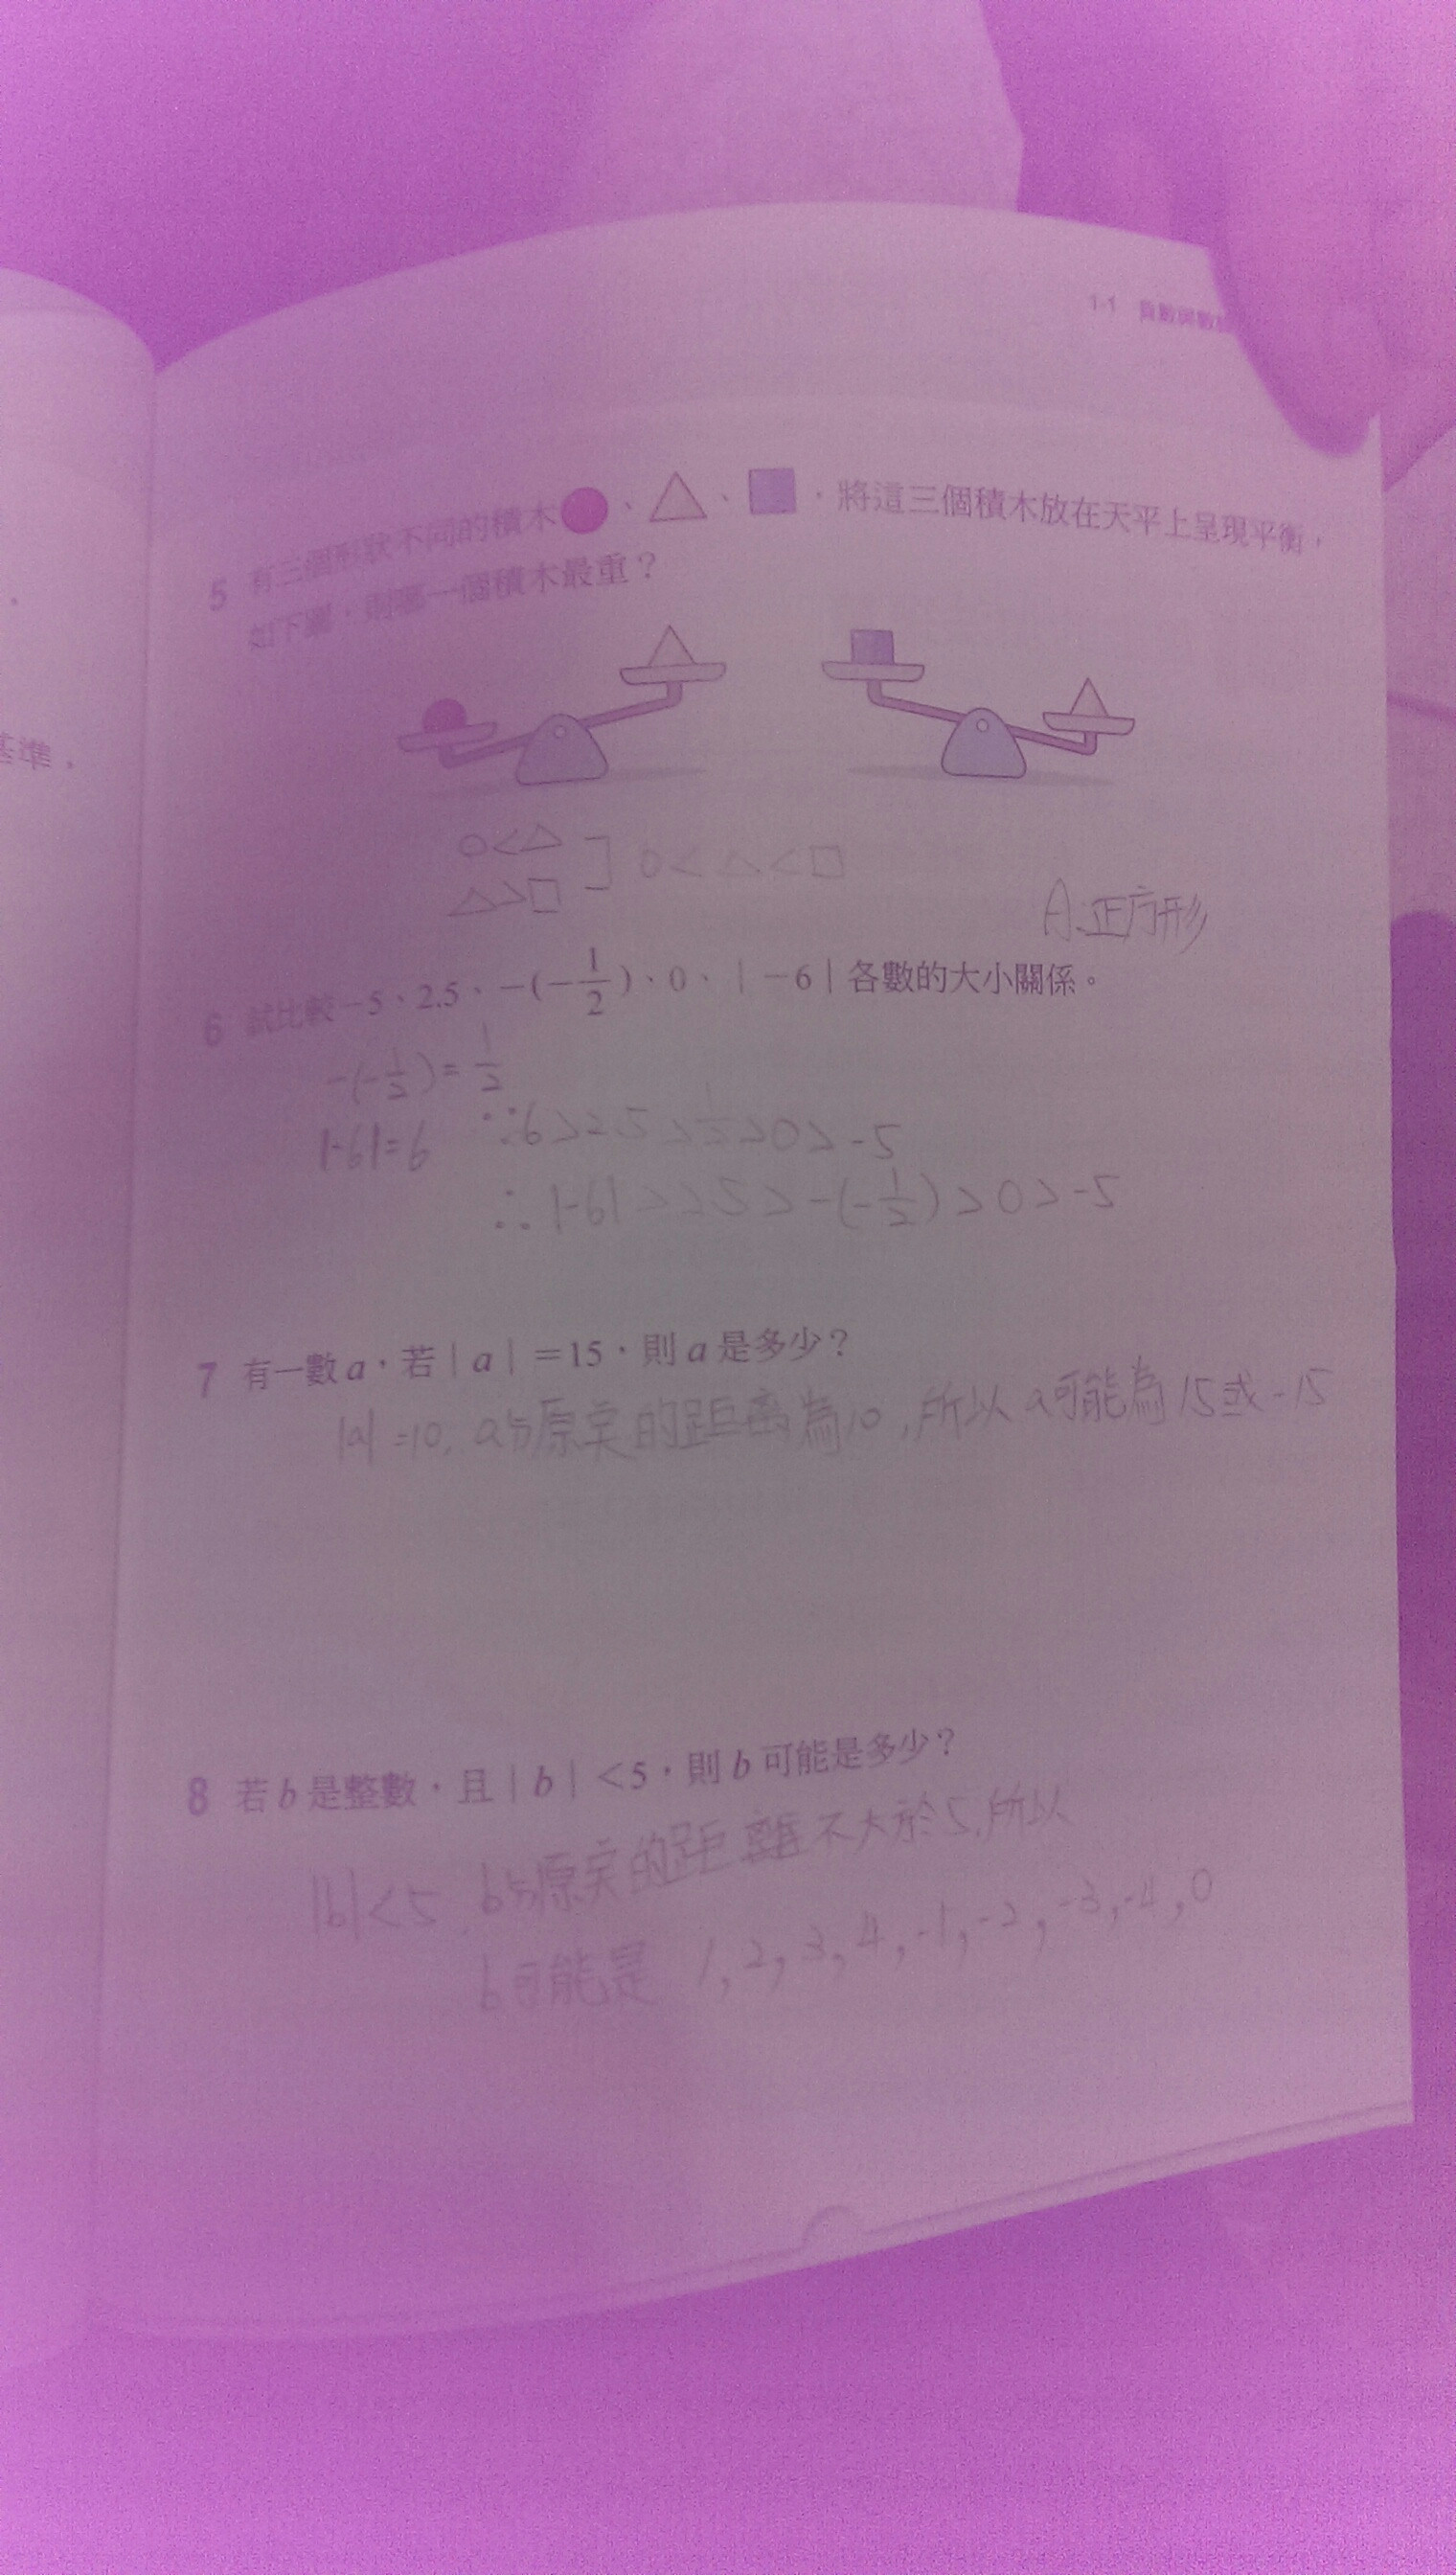 1-1 負數與數
5 有三個形狀不同的積木●、△、■，將這三個積木放在天平上呈現平衡，
如下圖，則哪一個積木最重？
○<△
△>□
] ○<△<□
A:正方形
6 試比較−5、2.5、−(−1/2)、0、|−6|各數的大小關係。
-(-1/2)=1/2
|-6|=6 ∵6>2.5>1/2>0>-5
∴|-6|>2.5>-(-1/2)>0>-5
7 有一數a，若|a|=15，則a是多少？
|a|=10, a與原點的距离為10,所以a可能為15或-15
8 若b是整數，且|b|<5，則b可能是多少？
|b|<5, b与原点的距離不大於5,所以
b可能是 1,2,3,4,-1,-2,-3,-4,0
基準，